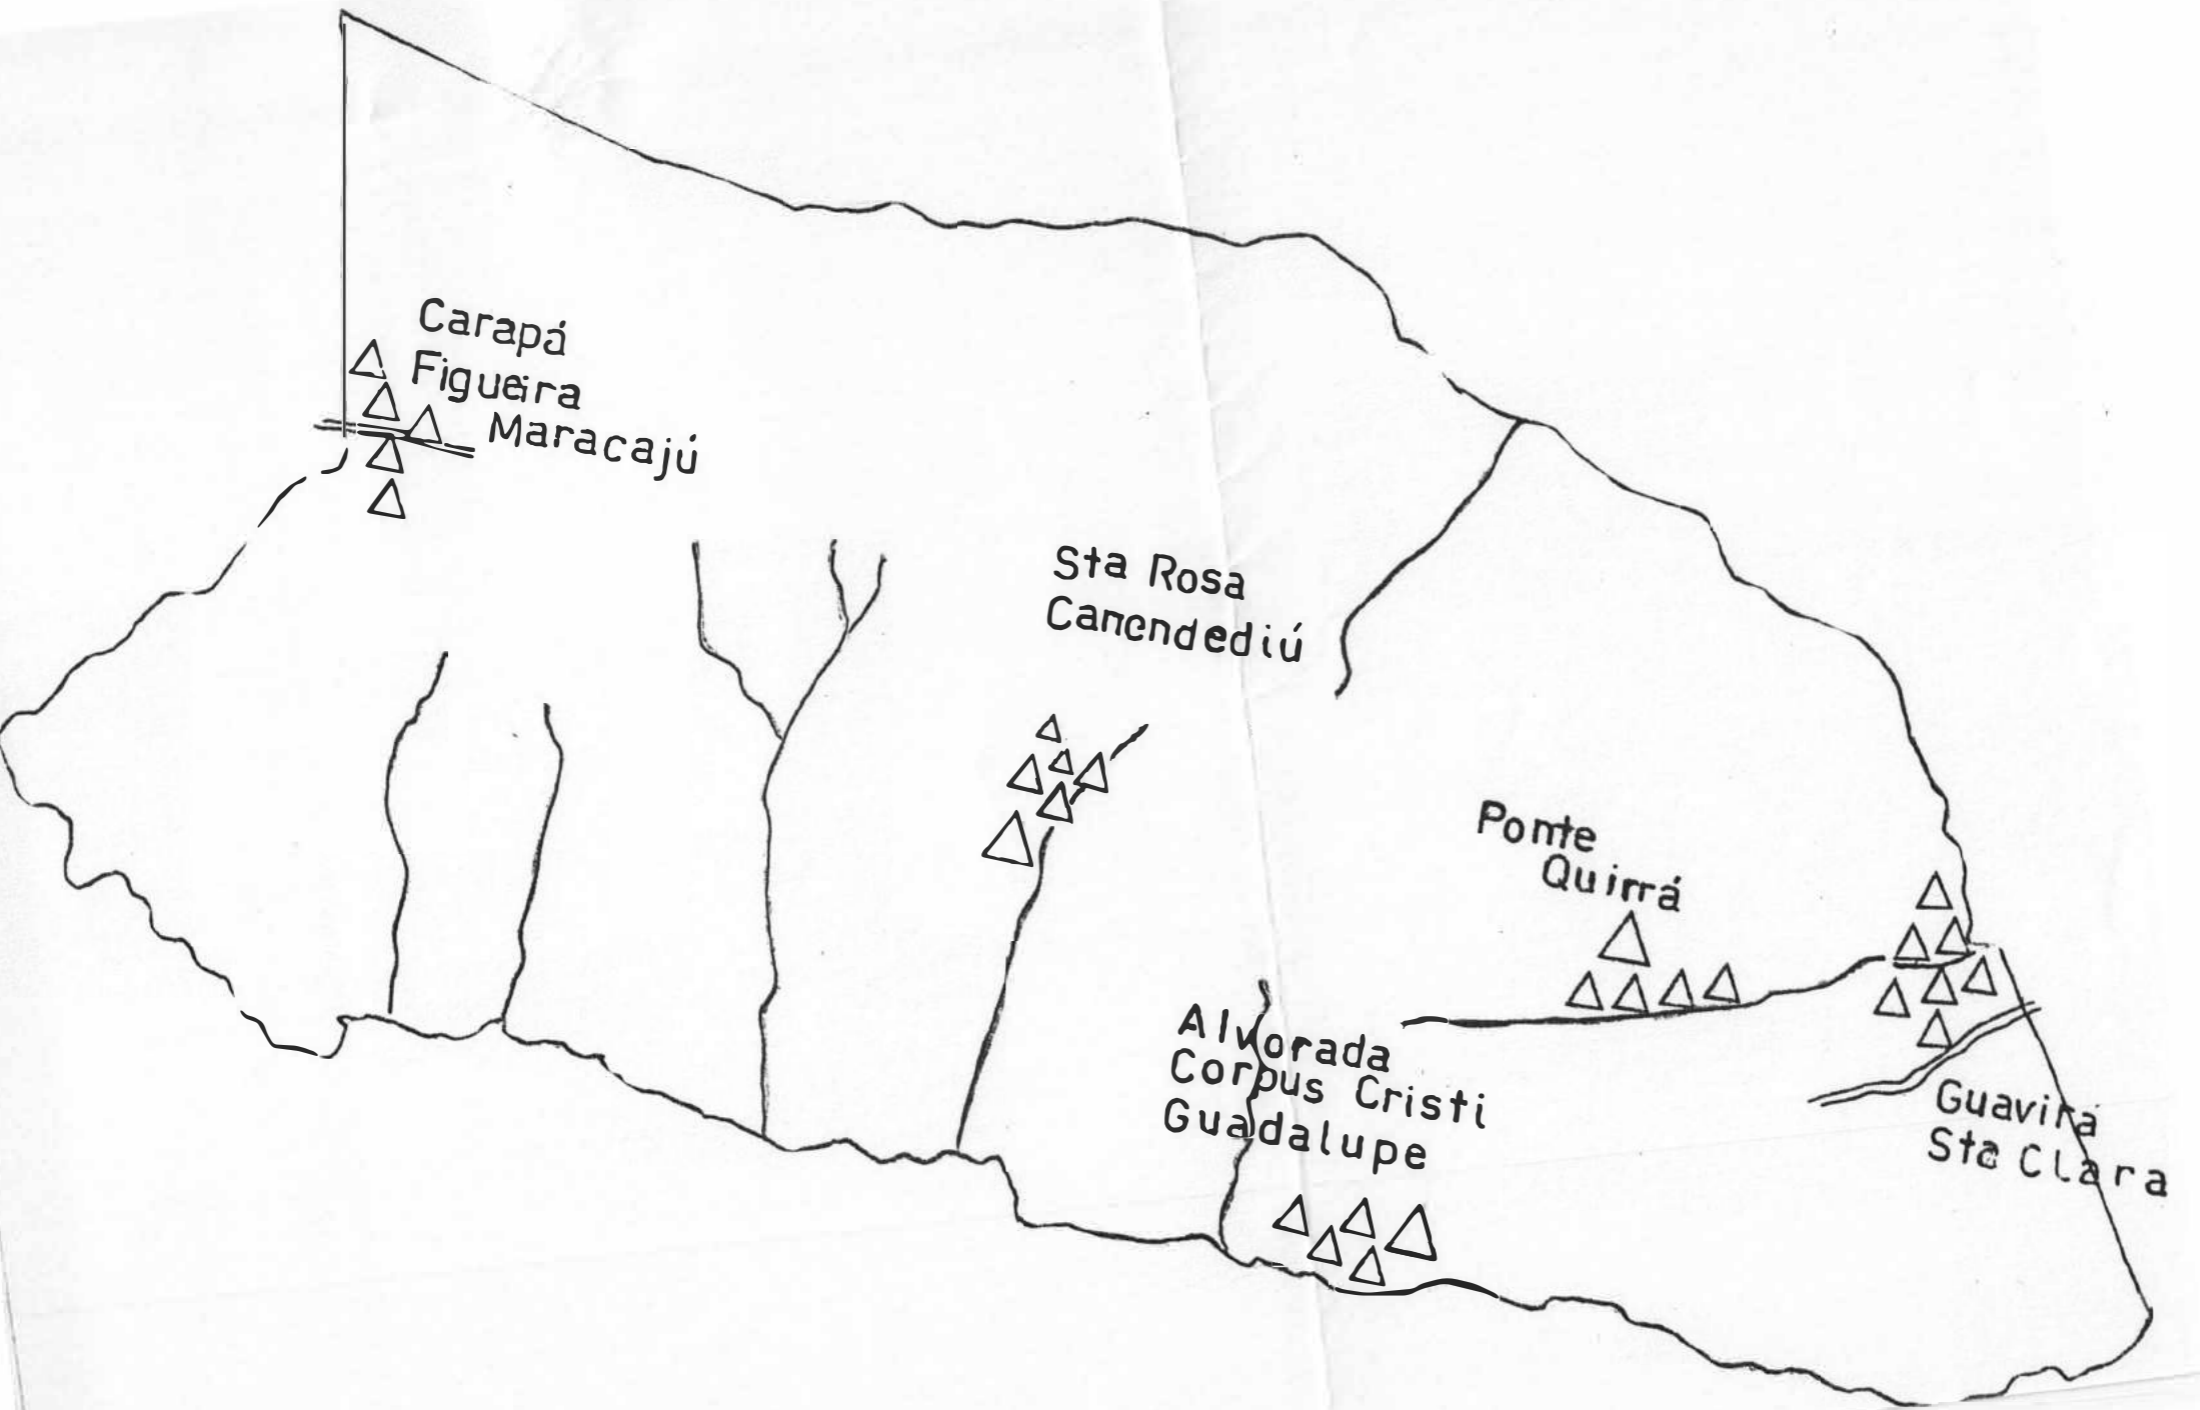 Carapá
Figueira
Maracajú
Sta Rosa
Canendediú
Ponte
Quirrá
Alvorada
Corpus Cristi
Guadalupe
Guavirá
Sta Clara